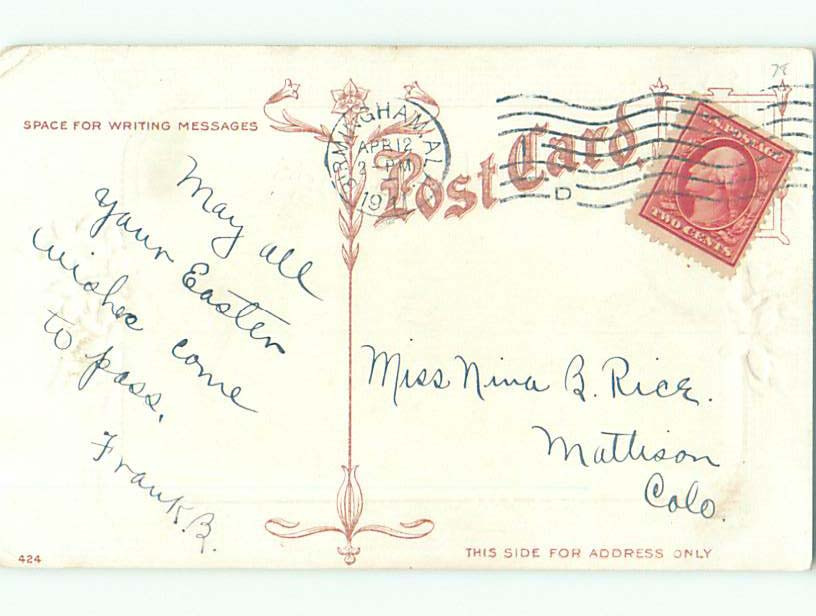 78
SPACE FOR WRITING MESSAGES
BIRMINGHAM, AL
APR 12
2 PM
Post Card.
D
U.S. POSTAGE
TWO CENTS
May all
your Easter
wishes come
to pass.
Frank. B.
Miss Nina B. Rice.
Mattison
Colo.
424
THIS SIDE FOR ADDRESS ONLY